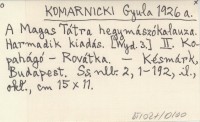 KOMARNICKI Gyula 1926 a.
A Magas Tátra hegymászókalauza.
Harmadik kiadás. [Wyd. 3] II. Ko-
pahágó - Rovátka. — Késmárk,
Budapest. Ss nlb 2, 1-192, il.,
okł., cm 15 x 11.